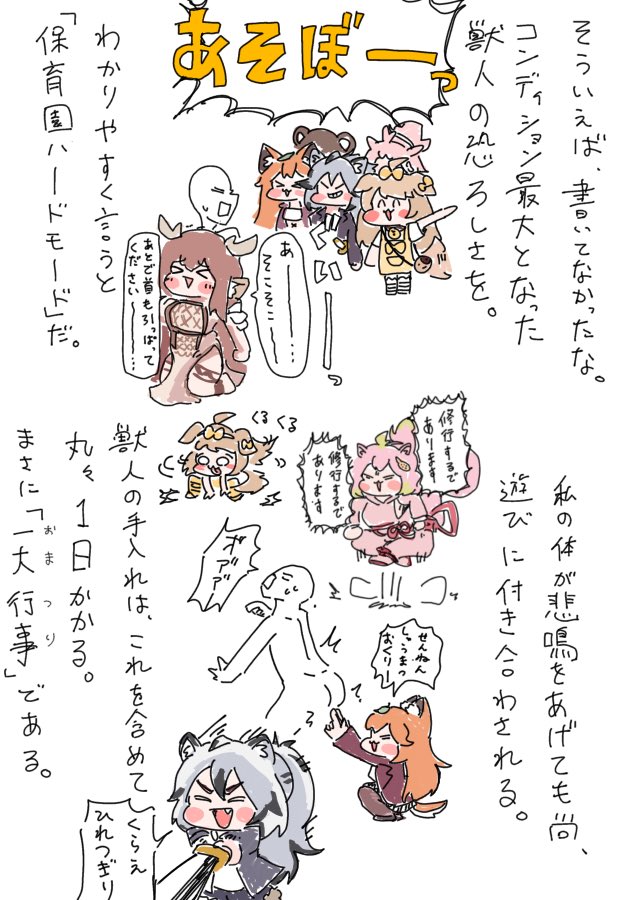 そういえば、書いてなかったな。
コンディション最大となった
獣人の恐ろしさを。
あそぼーっ
わかりやすく言うと
「保育園ハードモード」だ。
い
っ
あ
そこそこ……
あとで首も引っぱって
ください〜……
私の体が悲鳴をあげても尚、
遊びに付き合わされる。
修行するで
あります
修行するで
あります
くるくる
ボアアア
せんねん
しゅうまつ
おくりー
獣人の手入れは、これを含めて
丸々1日かかる。
まさに「一大行事」である。
おまつり
くらえ
ひれつぎり